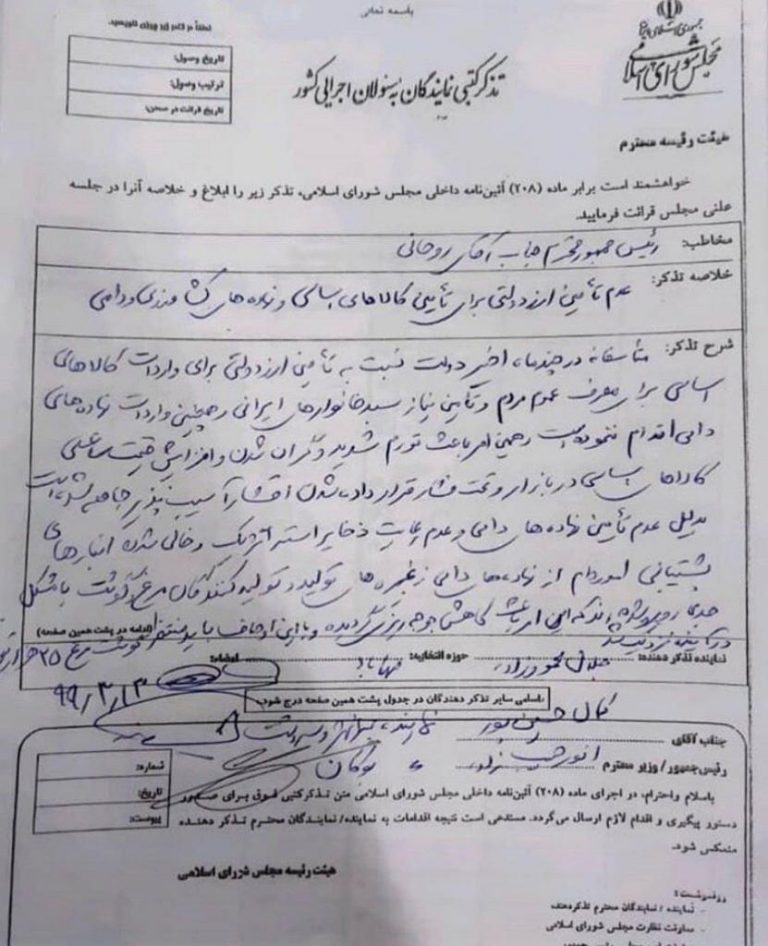 باسمه تعالی
جمهوری اسلامی ایران
مجلس شورای اسلامی
لطفاً در این کادر چیزی ننویسید.
تاریخ وصول:
ترتیب وصول:
تاریخ قرائت در صحن:
تذکر کتبی نمایندگان به مسئولان اجرایی کشور
هیئت رئیسه محترم
خواهشمند است برابر ماده (۲۰۸) آئین‌نامه داخلی مجلس شورای اسلامی، تذکر زیر را ابلاغ و خلاصه آنرا در جلسه
علنی مجلس قرائت فرمایید.
مخاطب: رئیس جمهور محترم جناب آقای روحانی
خلاصه تذکر: عدم تأمین ارز دولتی برای تأمین کالاهای اساسی و نهاده های کشاورزی و دامی
شرح تذکر: متأسفانه در چند ماه اخیر دولت نسبت به تأمین ارز دولتی برای واردات کالاهای
اساسی برای مصرف عموم مردم و تأمین نیاز سبد خانوارهای ایرانی و همچنین واردات نهاده‌های
دامی اقدام ننموده است و همین امر باعث تورم شدید و گران شدن و افزایش قیمت ساعتی
کالاهای اساسی در بازار و تحت فشار قرار داده شدن اقشار آسیب پذیر جامعه شده است
بدلیل عدم تأمین نهاده های دامی و عدم رعایت ذخایر استراتژیک و خالی شدن انبارهای
پشتیبانی امور دام از نهاده‌های دامی زنجیره های تولید و تولیدکنندگان مرغ و گوشت با مشکل
جدی روبرو شده اند که این امر باعث کاهش جوجه ریزی گردیده و با این اوصاف باید منتظر گوشت مرغ ۲۵ هزار
در آینه نزدیک شد
(ادامه در پشت همین صفحه)
نماینده تذکر دهنده: جلال محمودزاده حوزه انتخابیه: مهاباد امضاء:
۹۹/۳/۱۳
اسامی سایر تذکر دهندگان در جدول پشت همین صفحه درج شود.
کمال حسین پور نماینده پیرانشهر و سردشت
جناب آقای
انور حبیب زاده بوکان
رئیس‌جمهور / وزیر محترم
شماره:
تاریخ:
پیوست:
باسلام و احترام، در اجرای ماده (۲۰۸) آئین‌نامه داخلی مجلس شورای اسلامی متن تذکر کتبی فوق برای صدور
دستور پیگیری و اقدام لازم ارسال می‌گردد. مستدعی است نتیجه اقدامات به نماینده/ نمایندگان محترم تذکر دهنده
منعکس شود.
هیئت رئیسه مجلس شورای اسلامی
رونوشت:
- نماینده / نمایندگان محترم تذکردهنده
- معاونت نظارت مجلس شورای اسلامی